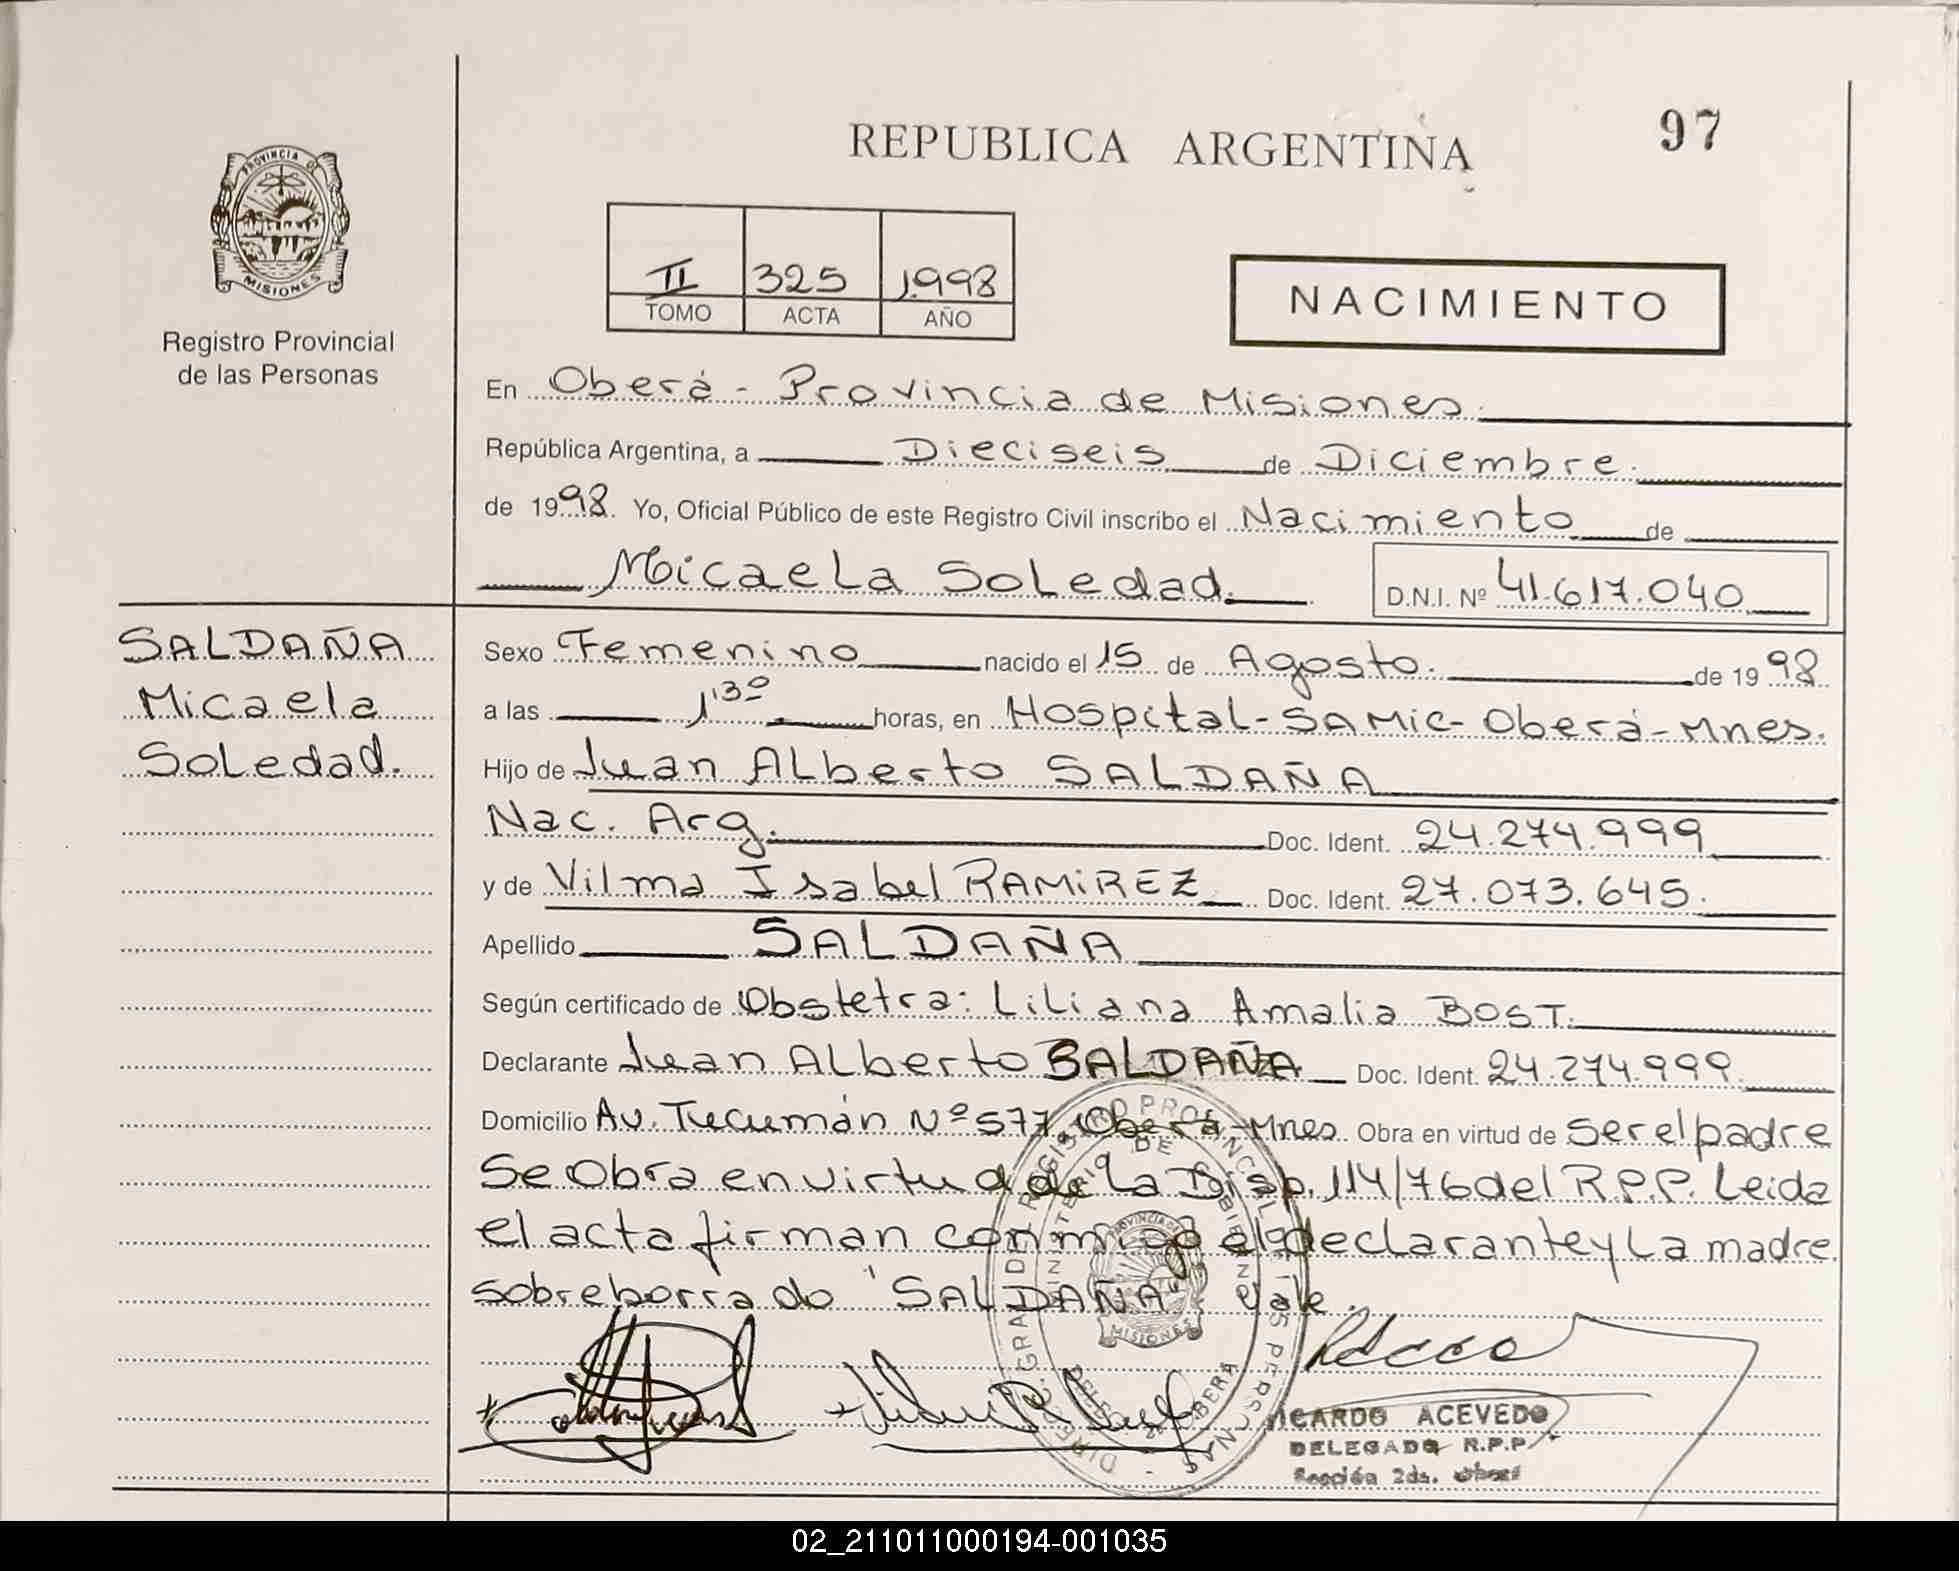 97
REPUBLICA ARGENTINA
PROVINCIA DE
MISIONES
Registro Provincial
de las Personas
II 325 1.998
TOMO ACTA AÑO
NACIMIENTO
En Oberá - Provincia de Misiones.
República Argentina, a Dieciseis de Diciembre.
de 1998. Yo, Oficial Público de este Registro Civil inscribo el Nacimiento de
Micaela Soledad. D.N.I. Nº 41.617.040
SALDAÑA
Micaela
Soledad.
Sexo Femenino nacido el 15 de Agosto. de 1998
a las 1'30 horas, en Hospital-SAMic-Oberá-Mnes.
Hijo de Juan Alberto SALDAÑA
Nac. Arg. Doc. Ident. 24.274.999
y de Vilma Isabel RAMiREZ Doc. Ident. 27.073.645.
Apellido SALDAÑA
Según certificado de Obstetra: Liliana Amalia BOST.
Declarante Juan Alberto SALDAÑA Doc. Ident. 24.274.999
Domicilio Av. Tucumán Nº 577 Oberá-Mnes. Obra en virtud de ser el padre
Se Obra en virtud de La Disp. 114/76 del R.P.P. Leida
el acta firman conmigo el declarante y La madre.
sobreborrado "SALDAÑA" Vale.
RICARDO ACEVEDO
DELEGADO R.P.P.
Sección 2da. Oberá
02_211011000194-001035